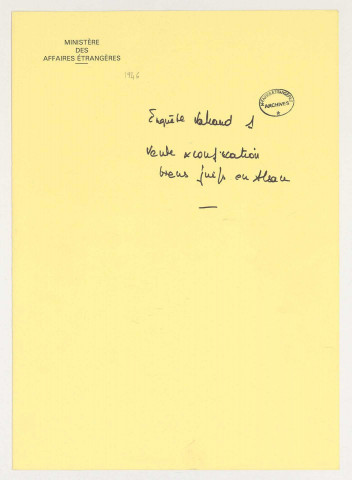 MINISTÈRE
DES
AFFAIRES ÉTRANGÈRES
1946
AFFAIRES ETRANGERES
ARCHIVES
Enquête Valland
Vente & confiscation
biens juifs en Alsace